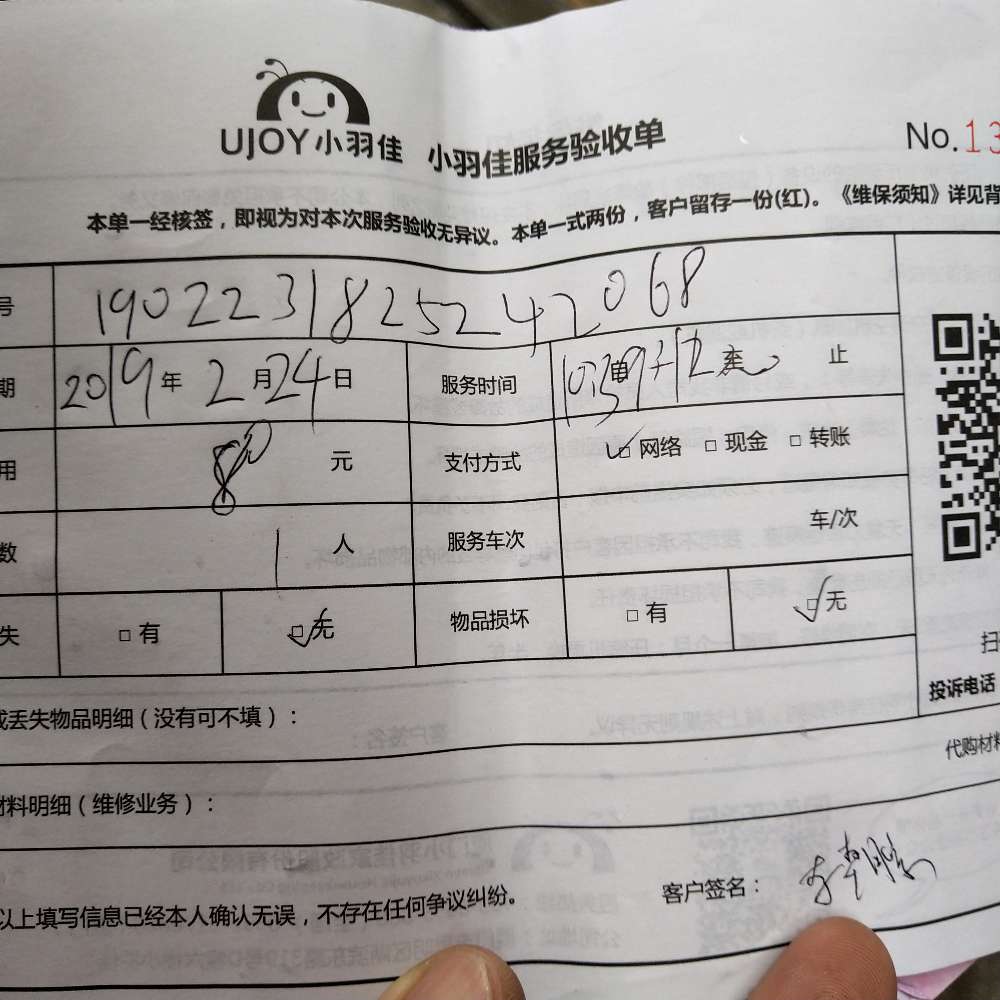 UJOY小羽佳 小羽佳服务验收单 No.13
本单一经核签，即视为对本次服务验收无异议。本单一式两份，客户留存一份(红)。《维保须知》详见背
号 1902231825242068
期 2019年2月24日 服务时间 止
用 元 支付方式 □网络 □现金 □转账
数 1人 服务车次 车/次
失 □有 □无 物品损坏 □有 □无
扫
投诉电话
或丢失物品明细（没有可不填）：
代购材料
材料明细（维修业务）：
客户签名：
以上填写信息已经本人确认无误，不存在任何争议纠纷。